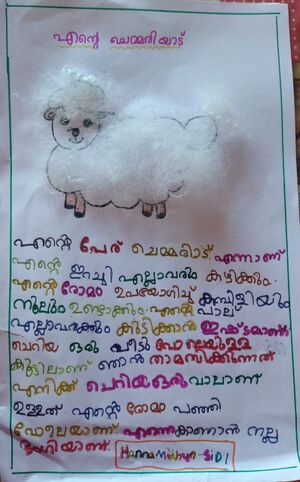 എന്റെ ചെമ്മരിയാട്
എന്റെ പേര് ചെമ്മരിയാട് എന്നാണ്
എന്റെ ഇറച്ചി എല്ലാവരും കഴിക്കും.
എന്റെ രോമം ഉപയോഗിച്ച് കമ്പിളിയും
നൂലും ഉണ്ടാക്കും. എന്റെ പാല്
എല്ലാവർക്കും കുടിക്കാൻ ഇഷ്ടമാണ്
ചെറിയ ഒരു വീട് പോലെയുള്ള
കൂട്ടിലാണ് ഞാൻ താമസിക്കുന്നത്
എനിക്ക് ചെറിയ ഒരു വാലാണ്
ഉള്ളത്. എന്റെ രോമം പഞ്ഞി
പോലെയാണ്. എന്നെ കാണാൻ നല്ല
ഭംഗിയാണ്. STD 1